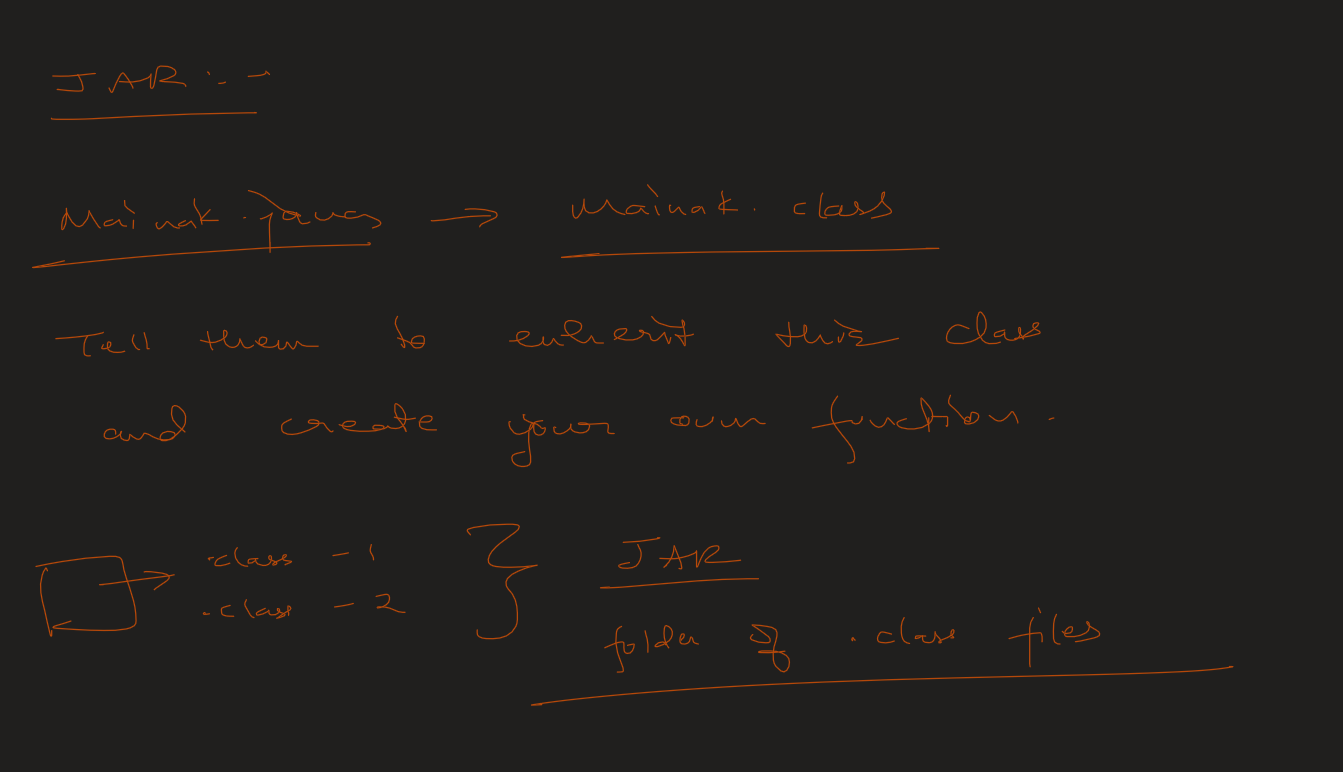 JAR :-
Mainak.java → Mainak.class
Tell them to enherit this class
and create your own function.
→ .class - 1 } JAR
.class - 2
folder of .class files